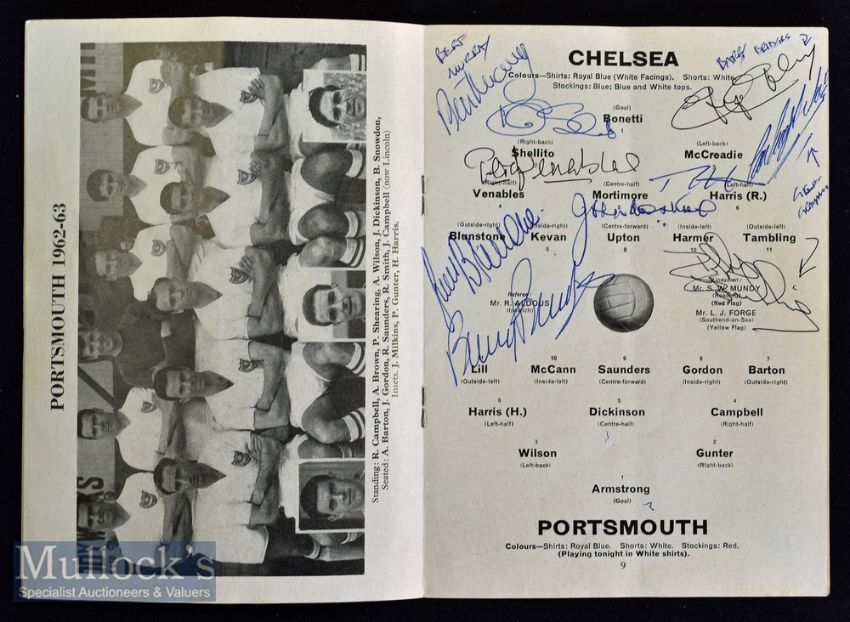 PORTSMOUTH 1962-63
Standing: R. Campbell, A. Brown, P. Shearing, A. Wilson, J. Dickinson, B. Snowdon,
Seated: A. Barton, J. Gordon, R. Saunders, R. Smith, J. Campbell (now Lincoln)
Insets. J. Milkins, P. Gunter, H. Harris.
BERT
MURRAY
Bert Murray
BARRY BRIDGES
CHELSEA
Colours—Shirts: Royal Blue (White Facings). Shorts: White.
Stockings: Blue; Blue and White tops.
(Goal)
Bonetti
1
(Right-back) (Left-back)
Shellito McCreadie
Terry Venables
(Right-half) (Centre-half) (Left-half)
Venables Mortimore Harris (R.)
4 6
(Outside-right) (Inside-right) (Centre-forward) (Inside-left) (Outside-left)
Blunstone Kevan Upton Harmer Tambling
8 9 11
Referee
Mr. R. ALDOUS
(Ipswich)
Linesmen:
Mr. S. W. MUNDY
(Reading)
(Red Flag)
Mr. L. J. FORGE
(Southend-on-Sea)
(Yellow Flag)
11 10 9 8 7
Lill McCann Saunders Gordon Barton
(Outside-left) (Inside-left) (Centre-forward) (Inside-right) (Outside-right)
6 5 4
Harris (H.) Dickinson Campbell
(Left-half) (Centre-half) (Right-half)
3 2
Wilson Gunter
(Left-back) (Right-back)
1
Armstrong
(Goal)
PORTSMOUTH
Colours—Shirts: Royal Blue. Shorts: White. Stockings: Red.
(Playing tonight in White shirts).
9
MULLOCK'S
Specialist Auctioneers & Valuers